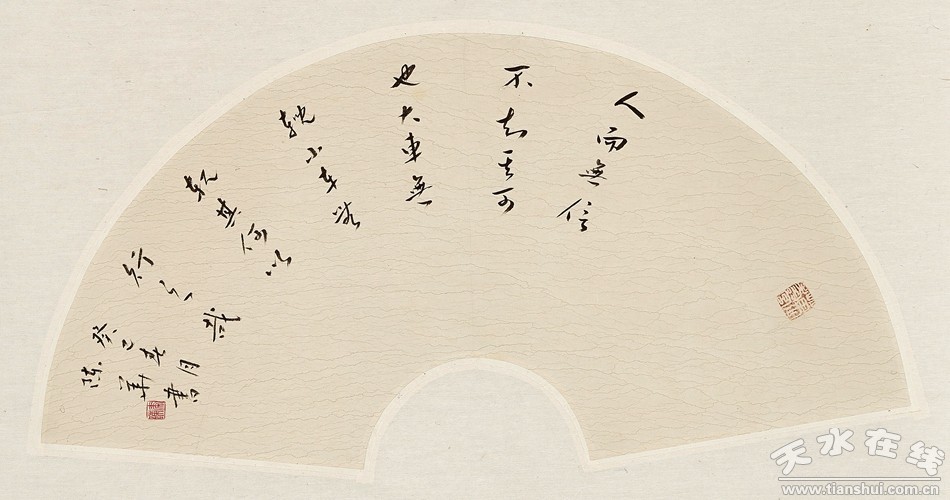 人而無信
不知其可
也大車無
輗小車無
軏其何以
行之哉
癸巳春月
陳華書
天水在线
www.tianshui.com.cn